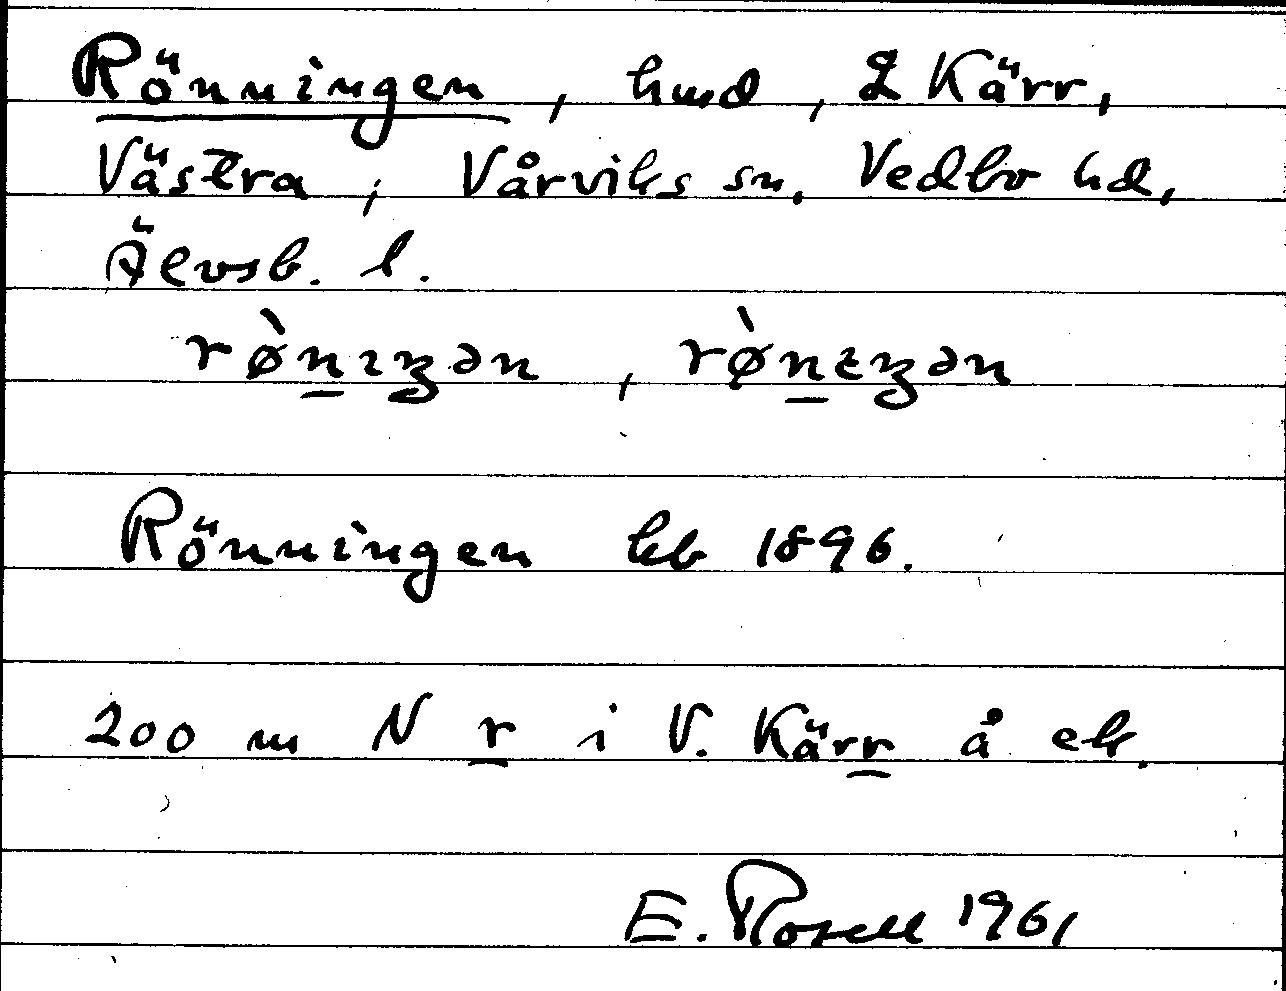 Rönningen, hmd, L Kärr,
Västra, Vårviks sn, Vedbo hd,
Älvsb. l.
rø̀n̲ɪŋən, rø̀n̲ɛŋən
Rönningen kb 1896.
200 m N r̲ i V. Kärr̲ å ek.
E. Rosell 1961